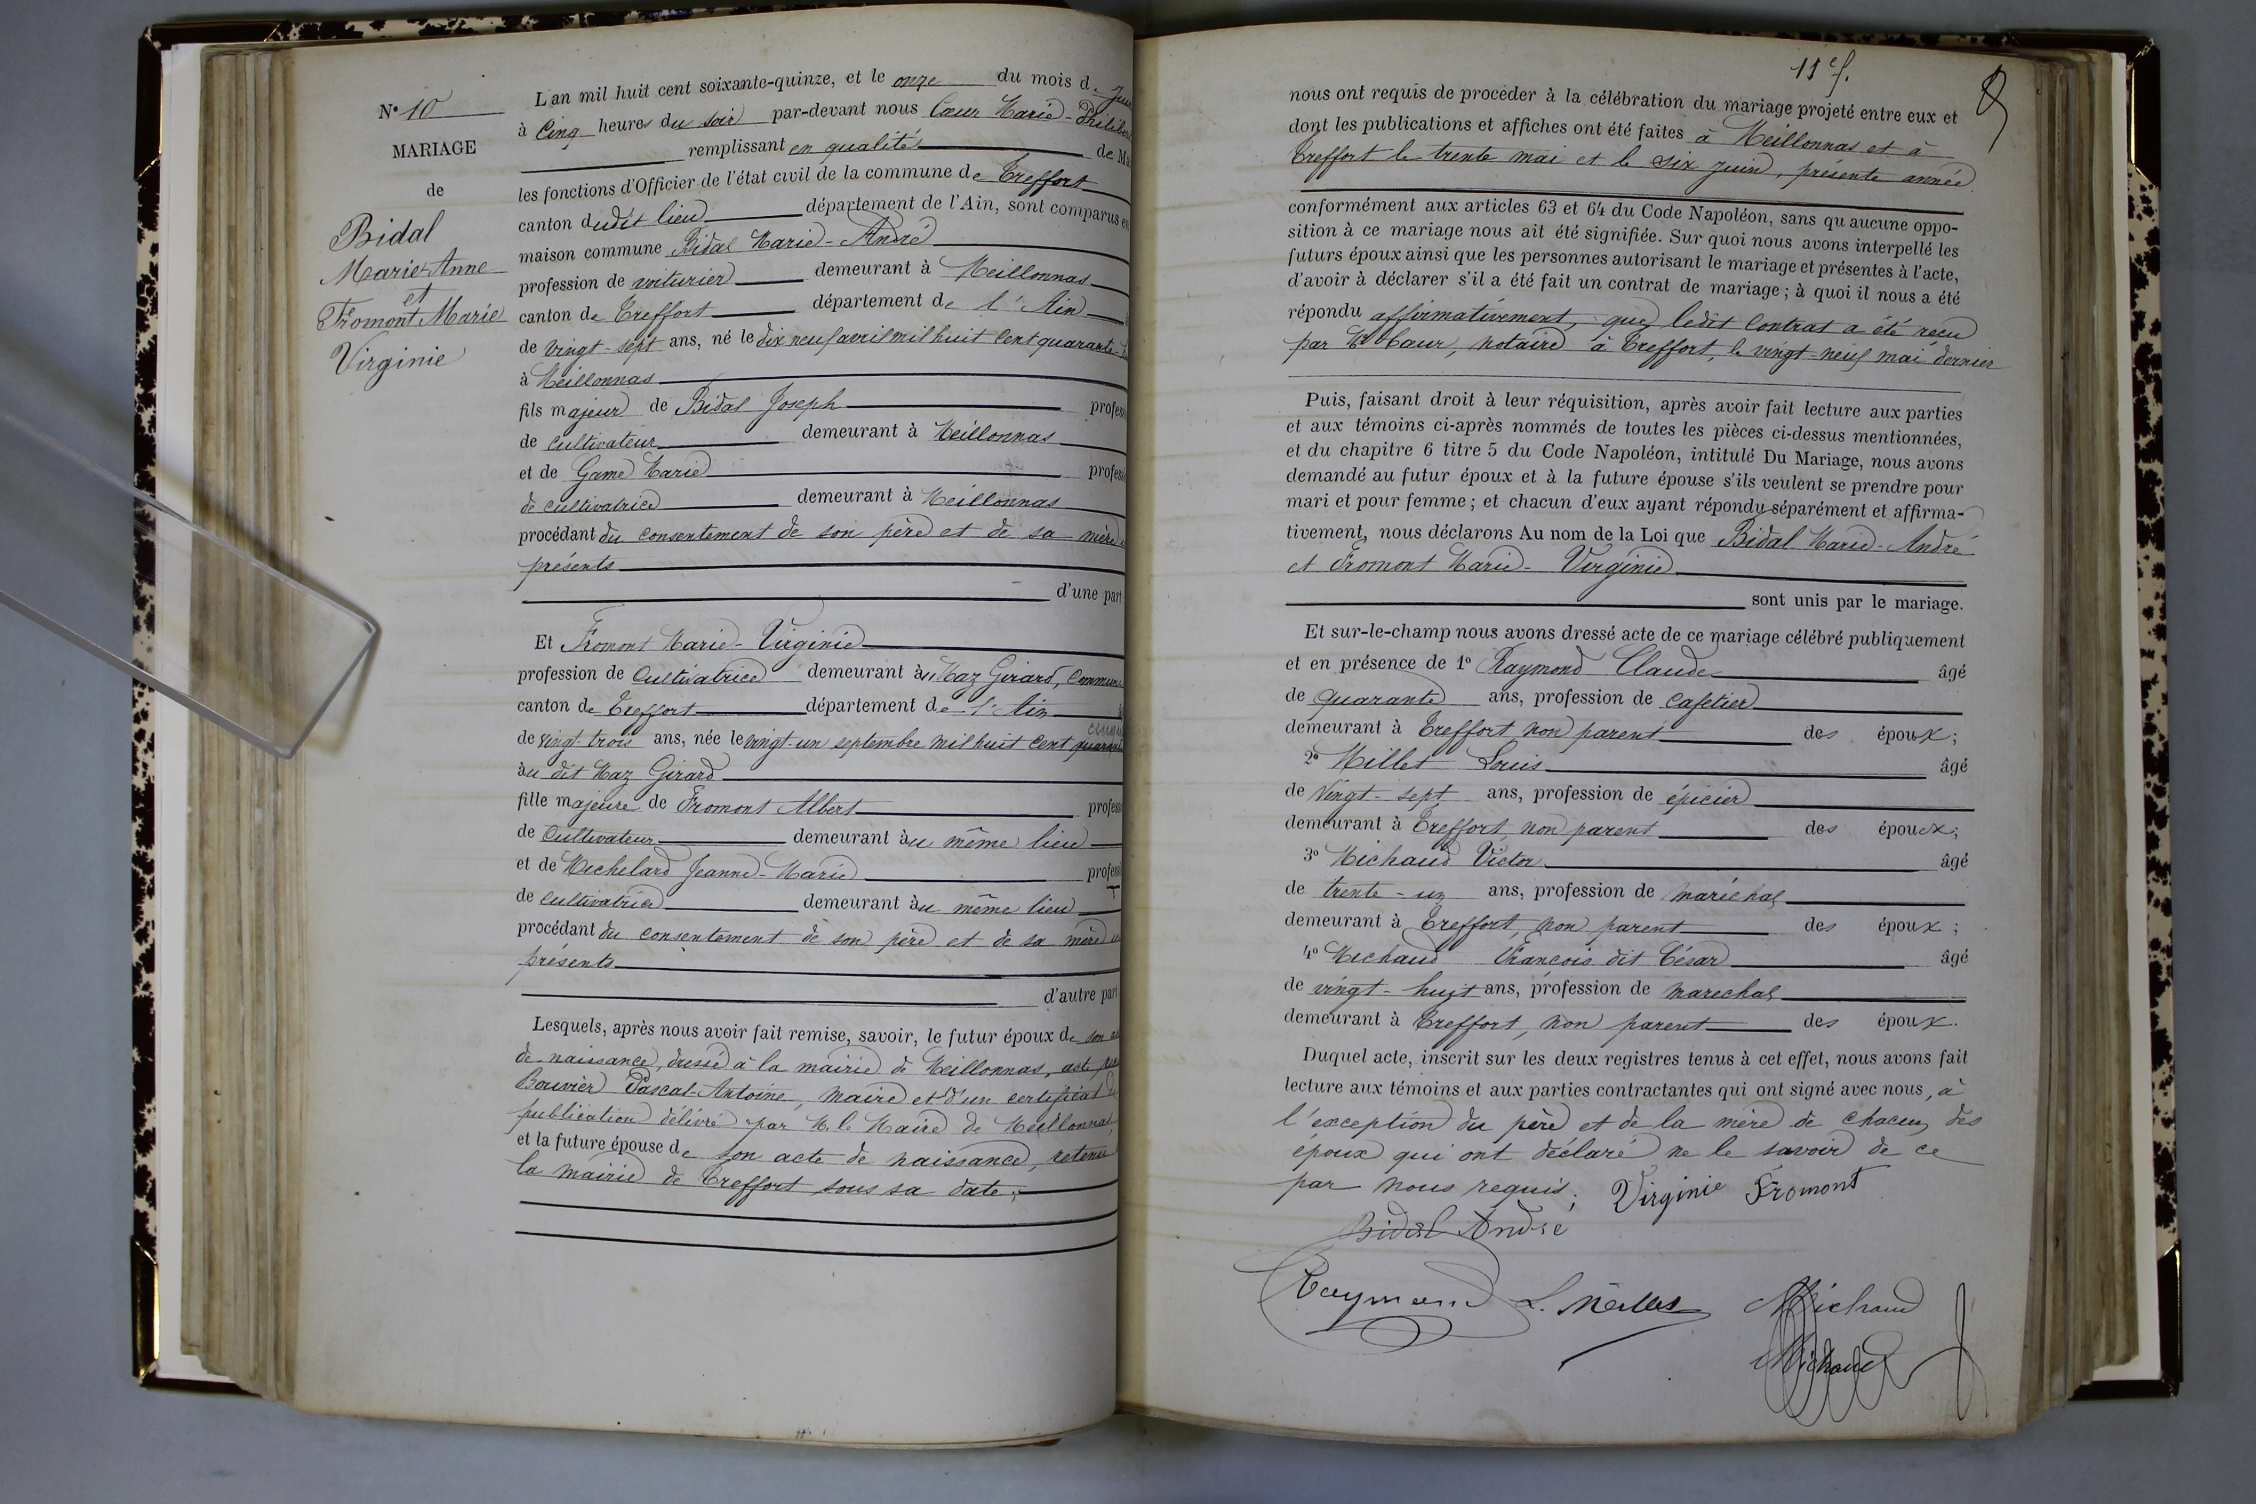 N° 10
MARIAGE
de
Bidal
Marie Anne
et
Fromont Marie
Virginie
L'an mil huit cent soixante-quinze, et le onze du mois de
à Cinq heures du soir par-devant nous Cœur Marie-Philibert
remplissant en qualité de
les fonctions d'Officier de l'état civil de la commune de Treffort
canton dudit lieu département de l'Ain, sont comparus en
maison commune Bidal Marie-André
profession de voiturier demeurant à Meillonnas
canton de Treffort département de l'Ain
de vingt-sept ans, né le dix neuf avril mil huit cent quarante
à Meillonnas
fils majeur de Bidal Joseph profess
de cultivateur demeurant à Meillonnas
et de Game Marie profess
de cultivatrice demeurant à Meillonnas
procédant du consentement de son père et de sa mère
présents
d'une part
Et Fromont Marie-Virginie
profession de Cultivatrice demeurant au Maz Girard, Commune
canton de Treffort département de l'Ain
de vingt-trois ans, née le vingt-un septembre mil huit cent
au dit Maz Girard
fille majeure de Fromont Albert profess
de Cultivateur demeurant au même lieu
et de Michelard Jeanne-Marie profess
de cultivatrice demeurant au même lieu
procédant du consentement de son père et de sa mère
présents
d'autre part
Lesquels, après nous avoir fait remise, savoir, le futur époux de son
de naissance, dressé à la mairie de Meillonnas, acte
Bouvier Pascal-Antoine, maire et d'un certificat
publication délivré par M. le Maire de Meillonnas,
et la future épouse de son acte de naissance, retenu
la mairie de Treffort sous sa date;
11 f.
nous ont requis de procéder à la célébration du mariage projeté entre eux et
dont les publications et affiches ont été faites à Meillonnas et à
Treffort le trente mai et le six juin, présente année
conformément aux articles 63 et 64 du Code Napoléon, sans qu'aucune oppo-
sition à ce mariage nous ait été signifiée. Sur quoi nous avons interpellé les
futurs époux ainsi que les personnes autorisant le mariage et présentes à l'acte,
d'avoir à déclarer s'il a été fait un contrat de mariage; à quoi il nous a été
répondu affirmativement, que ledit Contrat a été reçu
par Me Cœur, notaire à Treffort, le vingt-neuf mai dernier
Puis, faisant droit à leur réquisition, après avoir fait lecture aux parties
et aux témoins ci-après nommés de toutes les pièces ci-dessus mentionnées,
et du chapitre 6 titre 5 du Code Napoléon, intitulé Du Mariage, nous avons
demandé au futur époux et à la future épouse s'ils veulent se prendre pour
mari et pour femme; et chacun d'eux ayant répondu séparément et affirma-
tivement, nous déclarons Au nom de la Loi que Bidal Marie-André
et Fromont Marie-Virginie
sont unis par le mariage.
Et sur-le-champ nous avons dressé acte de ce mariage célébré publiquement
et en présence de 1° Raymond Claude âgé
de quarante ans, profession de cafetier
demeurant à Treffort non parent des époux;
2° Millet Louis âgé
de vingt-sept ans, profession de épicier
demeurant à Treffort, non parent des époux;
3° Michaud Victor âgé
de trente-un ans, profession de maréchal
demeurant à Treffort, non parent des époux;
4° Michaud François dit César âgé
de vingt-huit ans, profession de marechal
demeurant à Treffort, non parent des époux.
Duquel acte, inscrit sur les deux registres tenus à cet effet, nous avons fait
lecture aux témoins et aux parties contractantes qui ont signé avec nous, à
l'exception du père et de la mère de chacun des
époux qui ont déclaré ne le savoir de ce
par nous requis. Virginie Fromont
Bidal André
Raymond L. Millet Michaud
Michaud